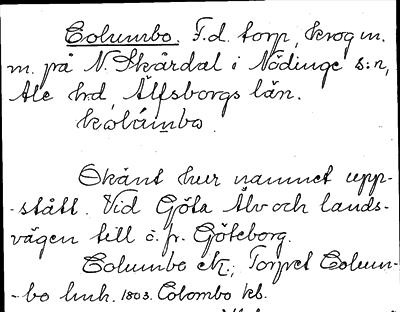 Columbo. F.d. torp, krog m.
m. på N. Skårdal i Nödinge s:n,
Ale hrd, Älfsborgs län.
kolúmbo
Okänt hur namnet upp-
-stått. Vid Göta Älv och lands-
vägen till o. fr. Göteborg.
Columbo
Torpet Colum-
-bo 1803. Colombo kb.